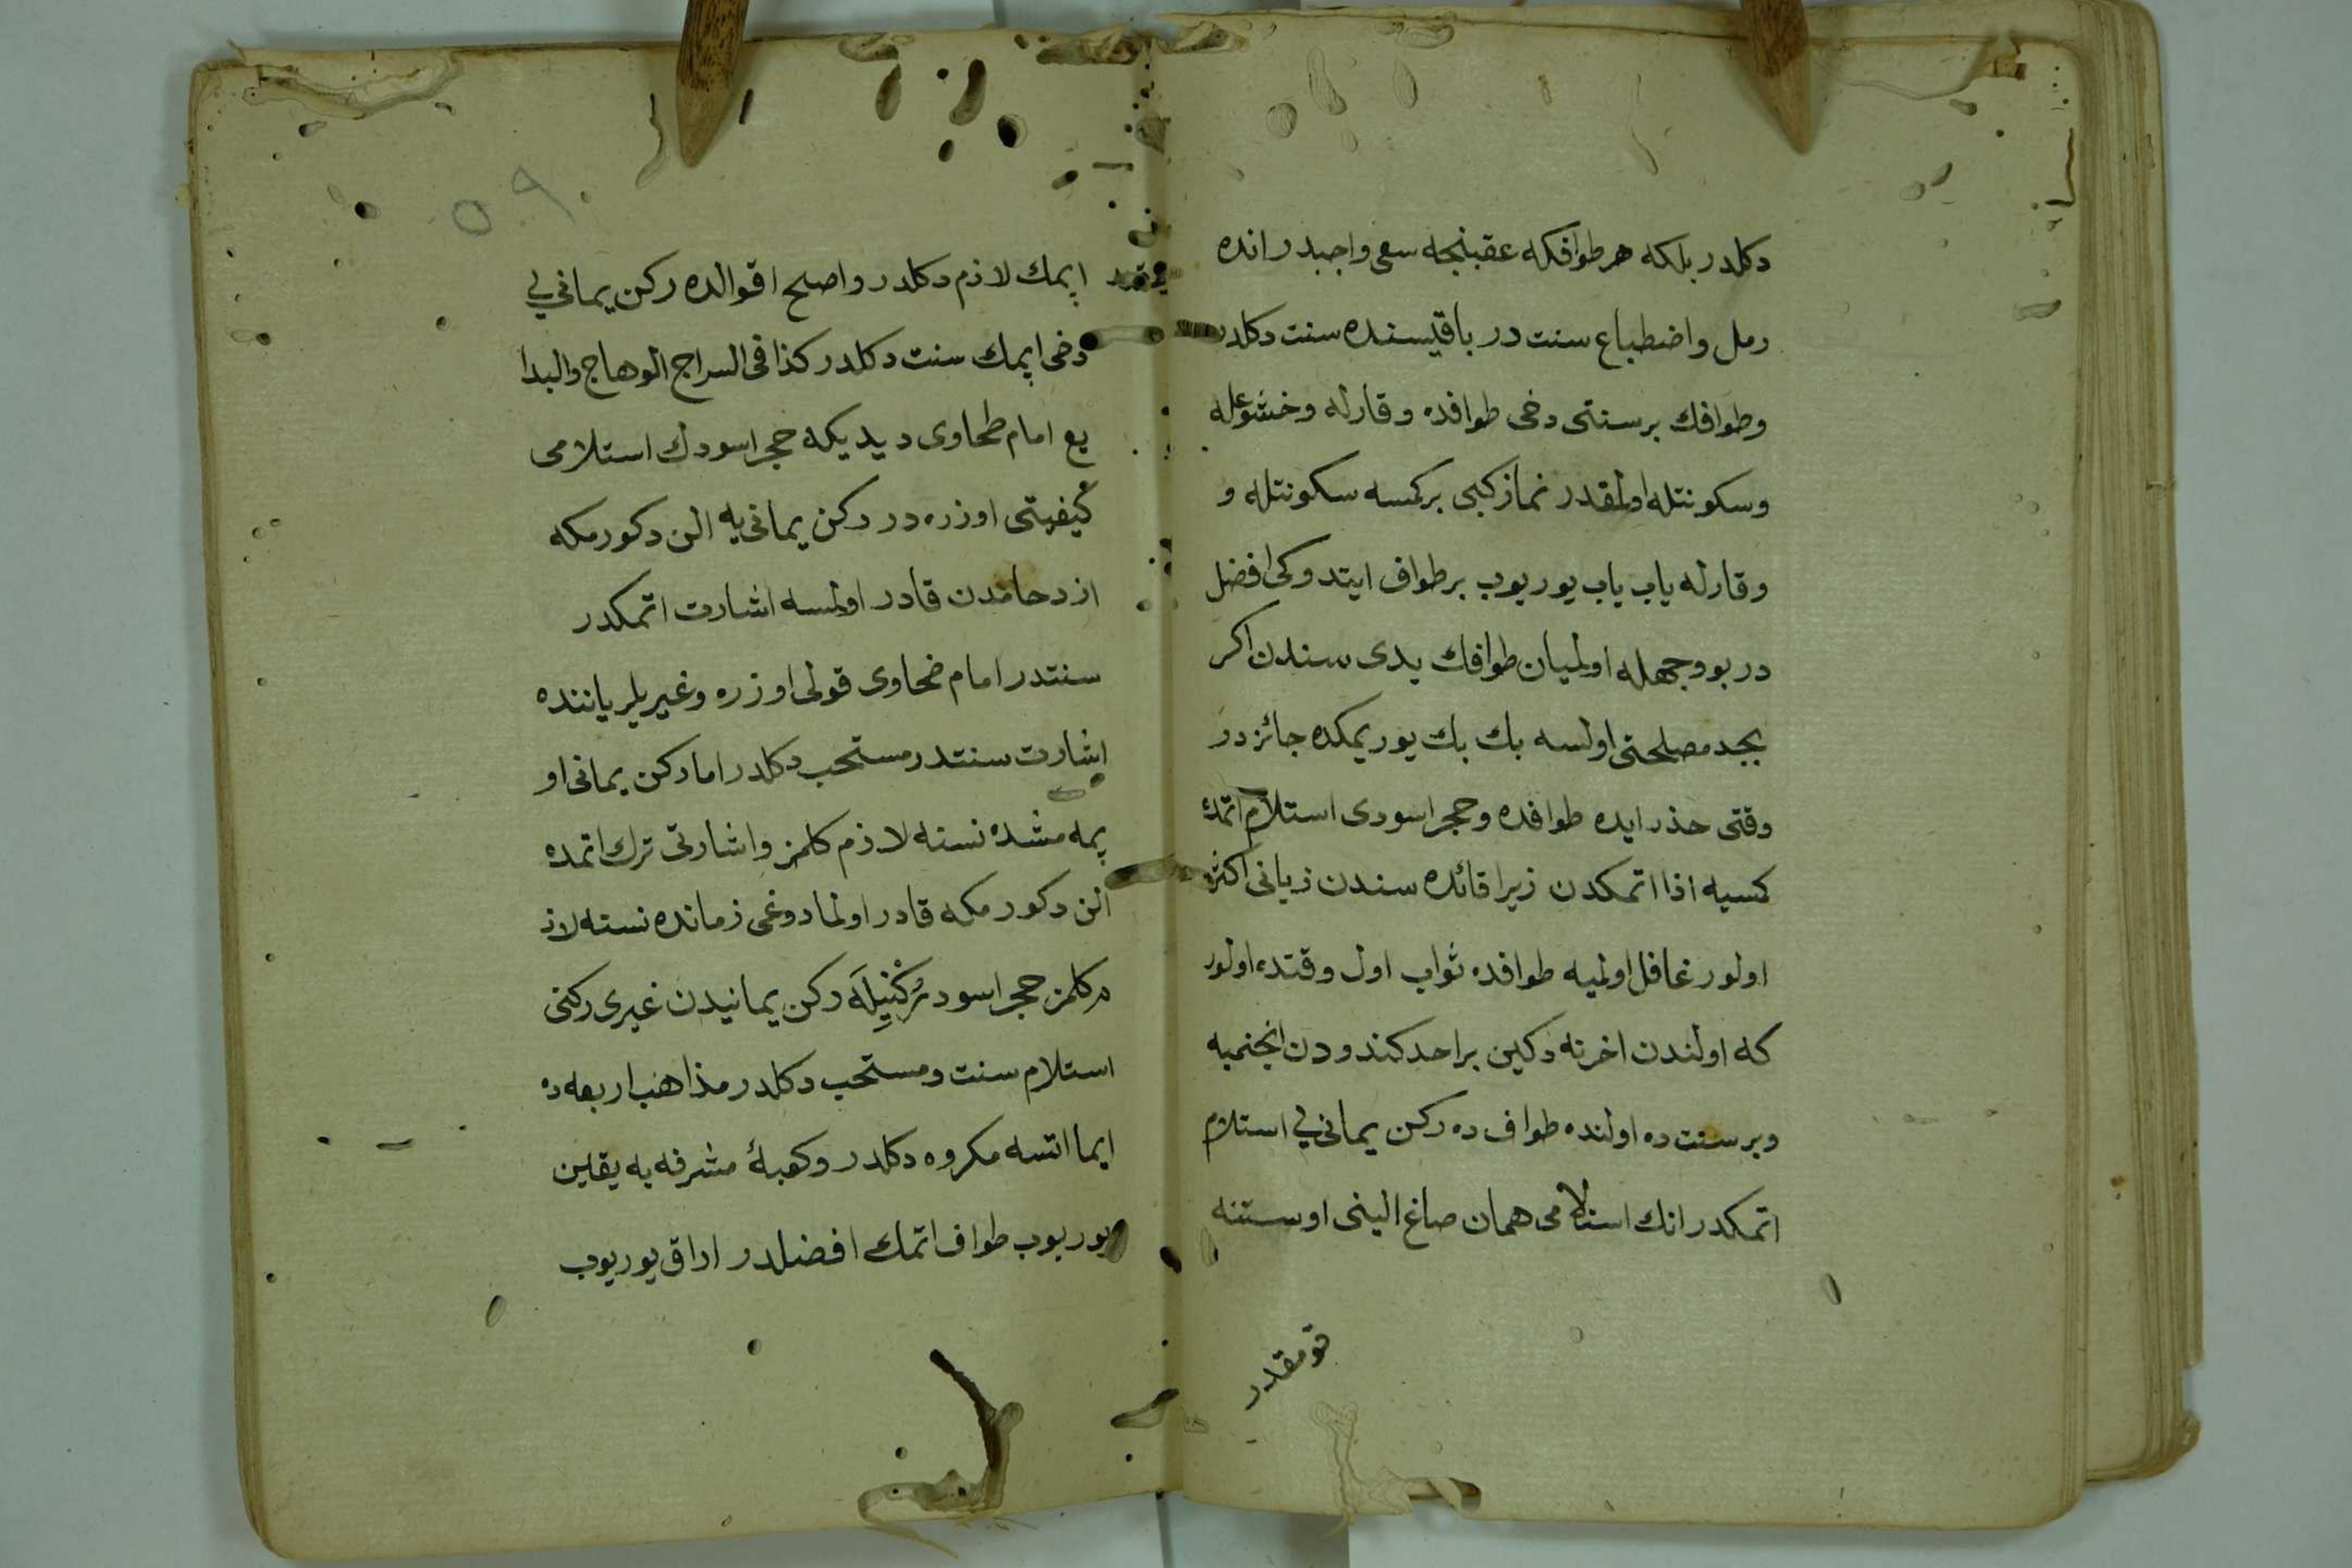 دكلدر بلكه هر طوافكه عقبنجه سعى واجبدر انده
رمل واضطباع سنت در باقيسنده سنت دكلدر
وطوافك برسنتى دخى طوافده وقارله وخشوعله
وسكونتله اولمقدر نماز كبى بركمسه سكونتله و
وقارله ياب ياب يوريوب برطواف ايتدوكى افضل
در بو وجهله اولميان طوافك يدى سندن اكر
بجد مصلحتى اولسه بك بك يوريمكده جائز در
وقتى حذر ايده طوافده وحجر اسودى استلام اتمك
كمسيه اذا اتمكدن زيرا فائده سندن زيانى اكثر
اولور غافل اولميه طوافده ثواب اول وقتده اولور
كه اولندن اخرنه دكين براحد كندودن انجنميه
وبر سنت ده اولنده طواف ده ركن يمانى يى استلام
اتمكدر انك استلامى همان صاغ الينى اوستنه
قومقدر
اپمك لازم دكلدر واصلح اقوالده ركن يمانى يى
دخى اپمك سنت دكلدر كذا فى السراج الوهاج والبدا
يع امام طحاوى ديديكه حجر اسودك استلامى
كيفيتى اوزره در ركن يمانى يه الن دكورمكه
ازدحامدن قادر اولمسه اشارت اتمكدر
سنتدر امام ضحاوى قولى اوزره وغيريلر ياننده
اشارت سنتدر مستحب دكلدر اما ركن يمانى او
پمه مشده نسنه لازم كلمز واشارتى ترك اتمده
الن دكورمكه قادر اولمادوغى زمانده نسته لاز
م كلمز حجر اسود رُكْنِيلَه ركن يمانيدن غيرى ركنى
استلام سنت ومستحب دكلدر مذاهب اربعه ده
ايما اتسه مكروه دكلدر وكعبۀ مشرفه يه يقين
يوريوب طواف اتمك افضلدر اراق يوريوب
٥٩